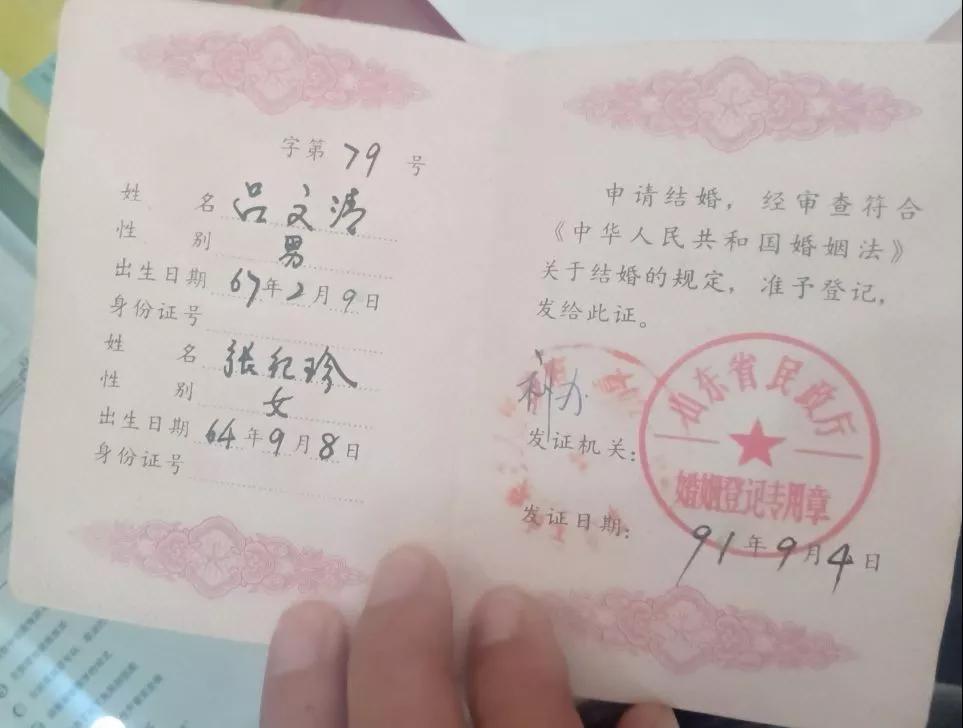 字第79号
姓名 吕文清
性别 男
出生日期 67年2月9日
身份证号
姓名 张纪珍
性别 女
出生日期 64年9月8日
身份证号
申请结婚，经审查符合
《中华人民共和国婚姻法》
关于结婚的规定，准予登记，
发给此证。
山东省民政厅
婚姻登记专用章
发证机关：
发证日期：91年9月4日